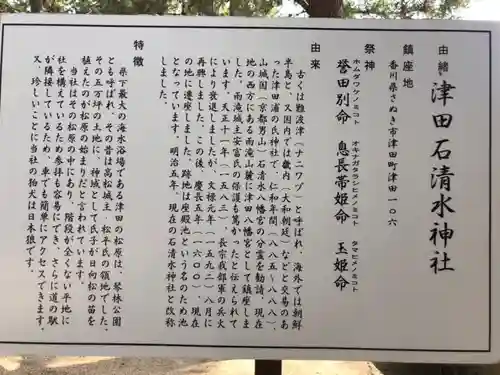 由緒 津田石清水神社
鎮座地
香川県さぬき市津田町津田一〇六
祭神
ホムダワケノミコト オキナガタラシヒメノミコト タマヒメノミコト
誉田別命 息長帯姫命 玉姫命
由来
古くは難波津(ナニワヅ)と呼ばれ、海外では朝鮮
半島と、又国内では畿内(大和朝廷)などと交易のあ
った津田浦の氏神社で、仁和年間(八八五～八八八)、
山城国(京都男山)石清水八幡宮の分霊を勧請、現在
地の西方にある雨滝山麓に津田八幡宮として鎮座しま
した。雨滝城主安富氏の保護も篤かったと伝えられて
います。天正十一年(一五八三)、長宗我部軍の兵火
により衰退しましたが、文禄元年(一五九二)八月に
再興しました。この後、慶長五年(一六〇〇)、現在
の地に遷座しました。跡地は座殿池という名のため池
となっています。明治五年、現在の石清水神社と改称
しました。
特徴
県下最大の海水浴場である津田の松原は、琴林公園
とも呼ばれ、その昔は高松城主、松平氏の領地でした。
その五万坪の土地に、神域として氏子が日向松の苗を
植えたのが松原の始まりだと言われています。
当社はその松原の中にあり、階段が全くない平地に
社を構えているため参拝も容易にでき、さらに道の駅
が隣接しているため、車でも簡単にアクセスできます。
又、珍しいことに当社の狛犬は日本狼です。